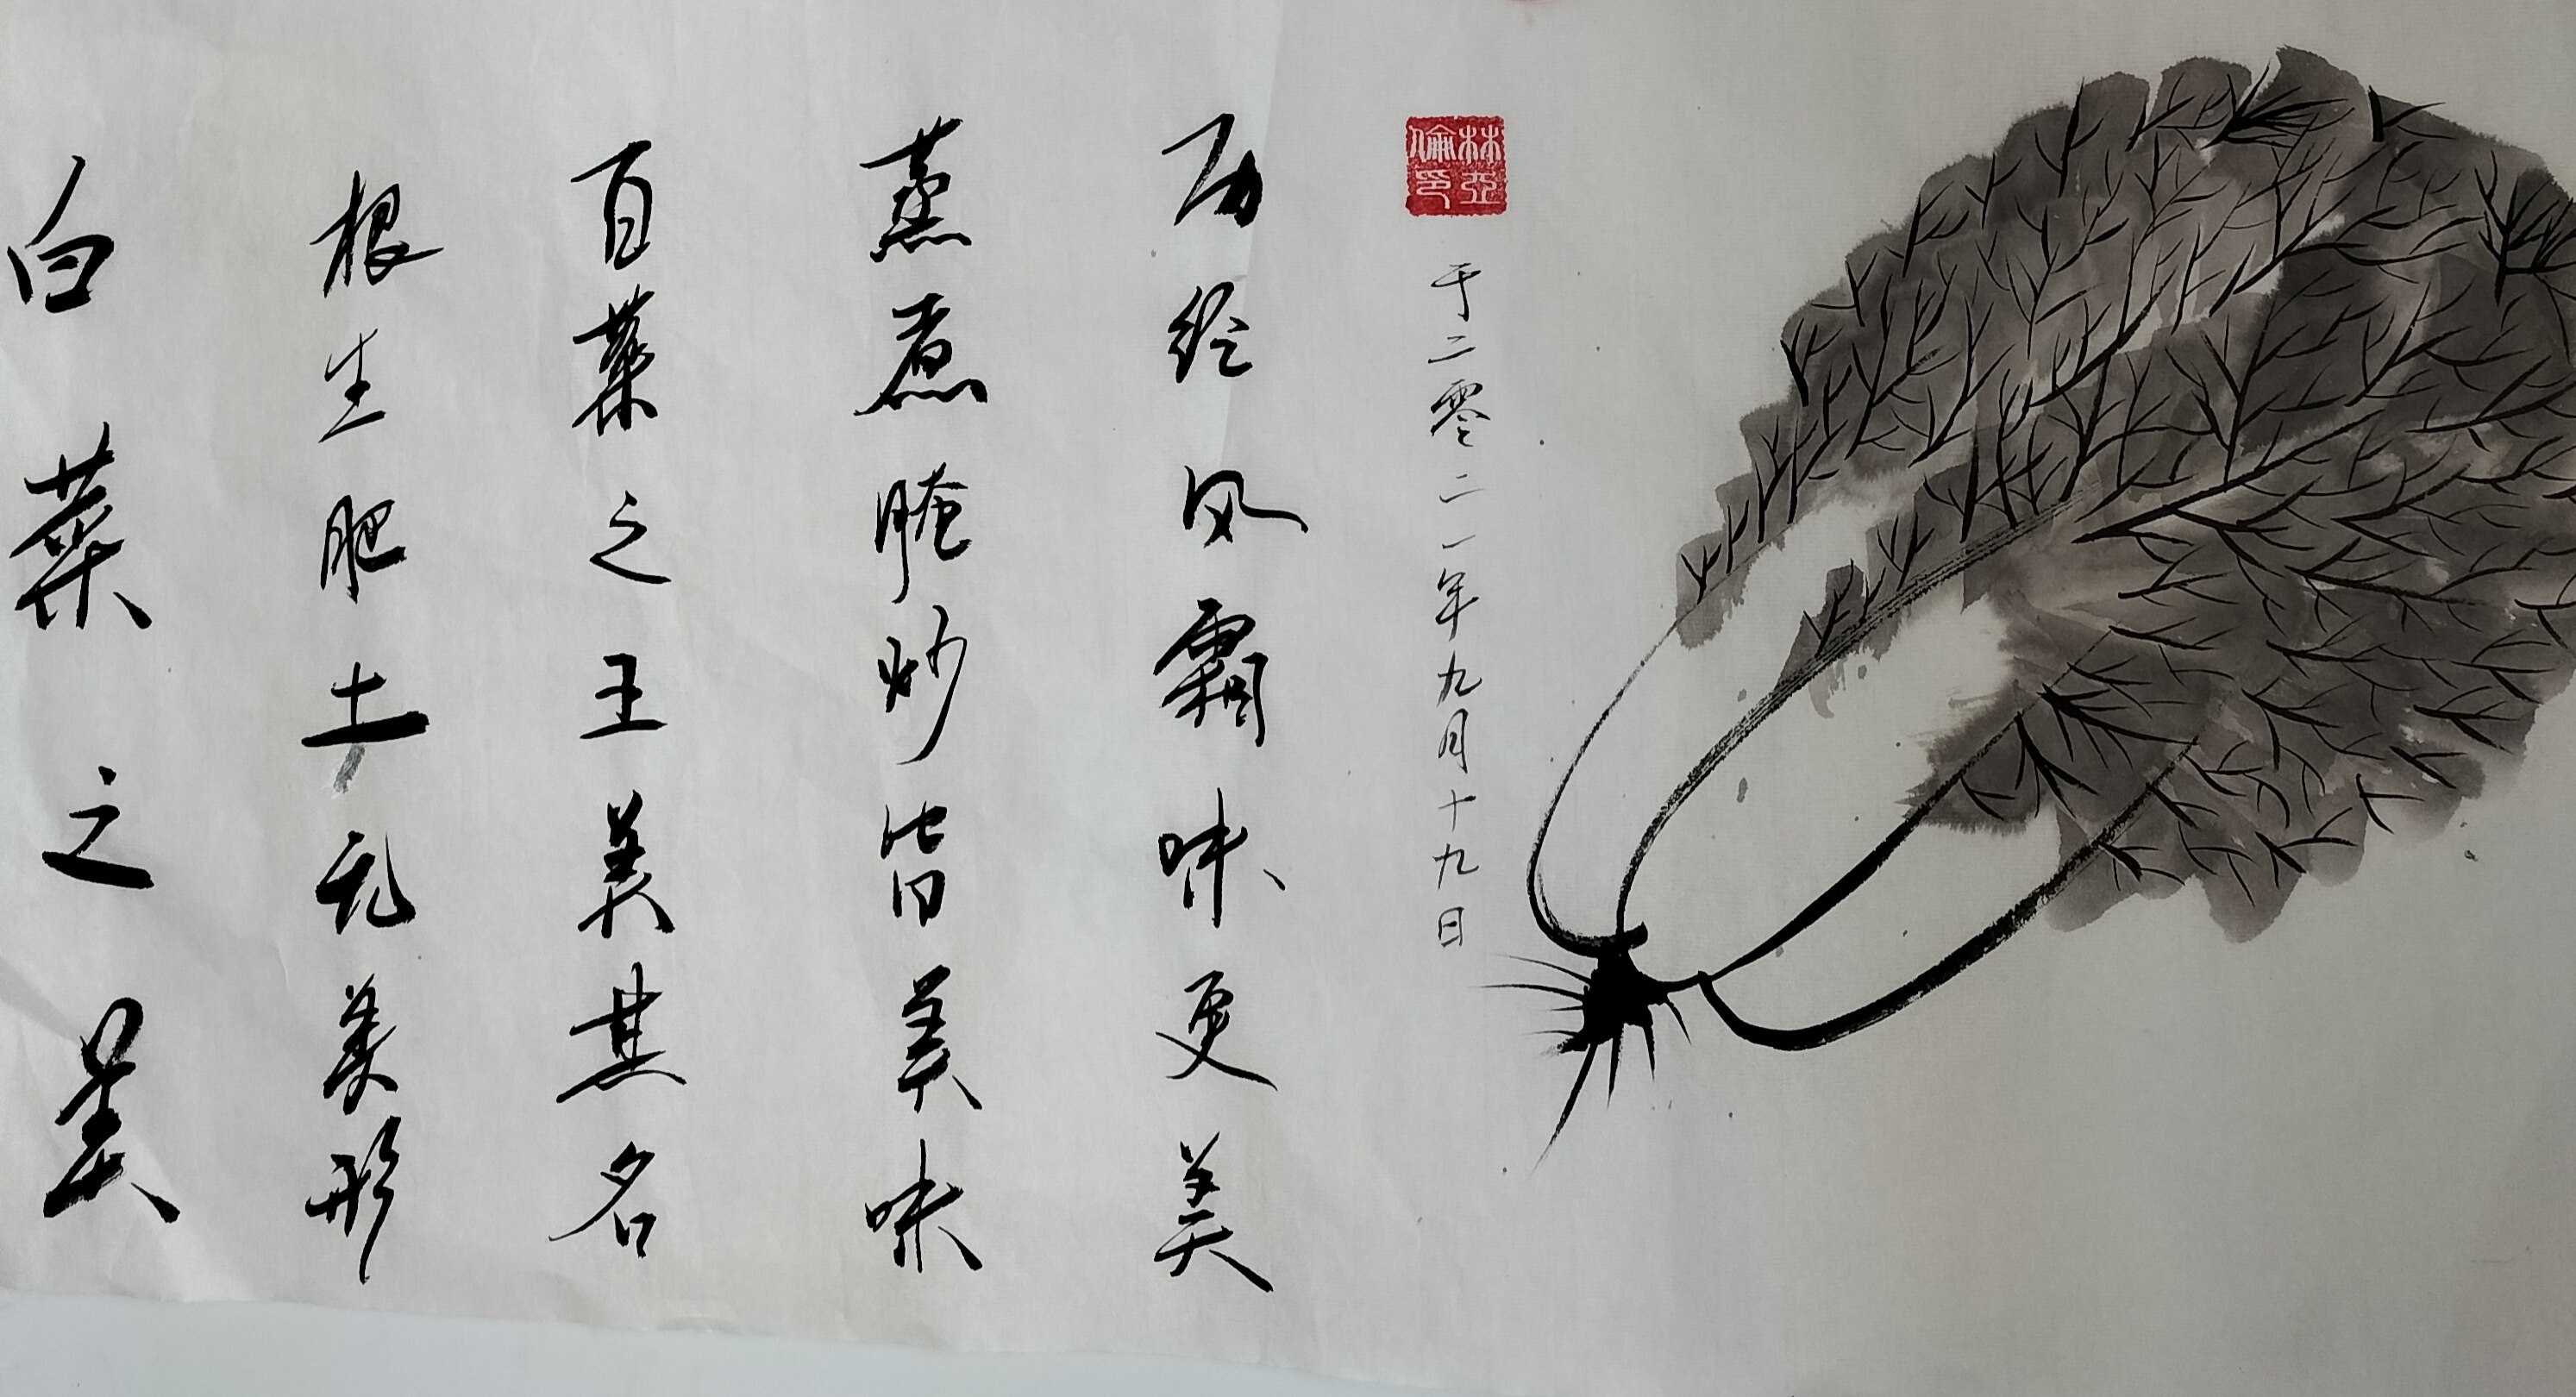 白菜之美
根生肥土美形
百菜之王美其名
蒸煮腌炒皆美味
历经风霜味更美
林亞倫印
于二零二一年九月十九日